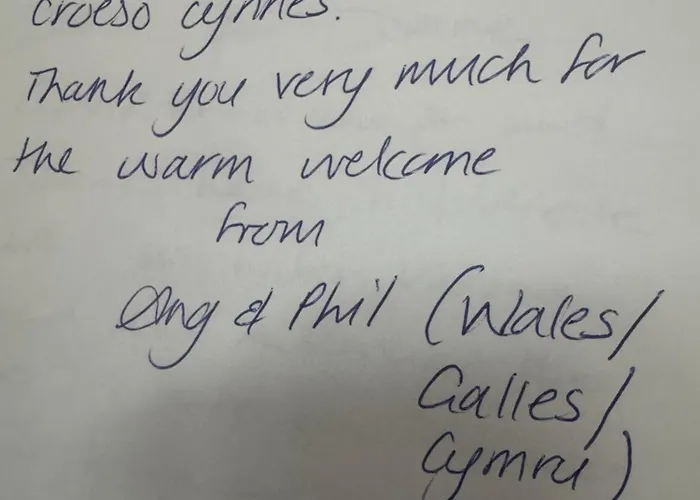 croeso cynnes.
Thank you very much for
the warm welcome
from
Ang & Phil (Wales/
Galles/
Cymru)